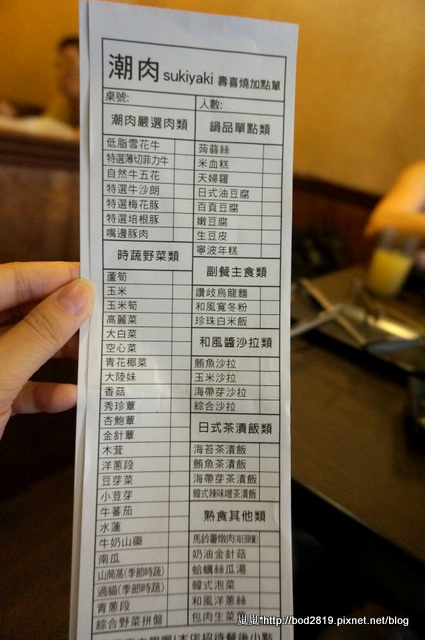 潮肉 sukiyaki 壽喜燒加點單
桌號:
人數:
潮肉嚴選肉類
低脂雪花牛
特選薄切菲力牛
自然牛五花
特選牛沙朗
特選梅花豚
特選培根豚
嘴邊豚肉
時蔬野菜類
蘆筍
玉米
玉米筍
高麗菜
大白菜
空心菜
青花椰菜
大陸妹
香菇
秀珍蕈
杏鮑蕈
金針蕈
木茸
洋蔥段
豆芽菜
小荳芽
牛蕃茄
水蓮
牛奶山藥
南瓜
山茼萵(季節時蔬)
過貓(季節時蔬)
青蔥段
綜合野菜拼盤
鍋品單點類
蒟蒻絲
米血糕
天婦羅
日式油豆腐
百頁豆腐
嫩豆腐
生豆皮
寧波年糕
副餐主食類
讚岐烏龍麵
和風寬冬粉
珍珠白米飯
和風醬沙拉類
鮪魚沙拉
玉米沙拉
海帶芽沙拉
綜合沙拉
日式茶漬飯類
海苔茶漬飯
鮪魚茶漬飯
海帶芽茶漬飯
韓式辣味噌茶漬飯
熟食其他類
馬鈴薯燉肉(每日限量)
奶油金針菇
蛤蠣絲瓜湯
韓式泡菜
和風洋蔥絲
包肉生菜
思思*http://bod2819.pixnet.net/blog